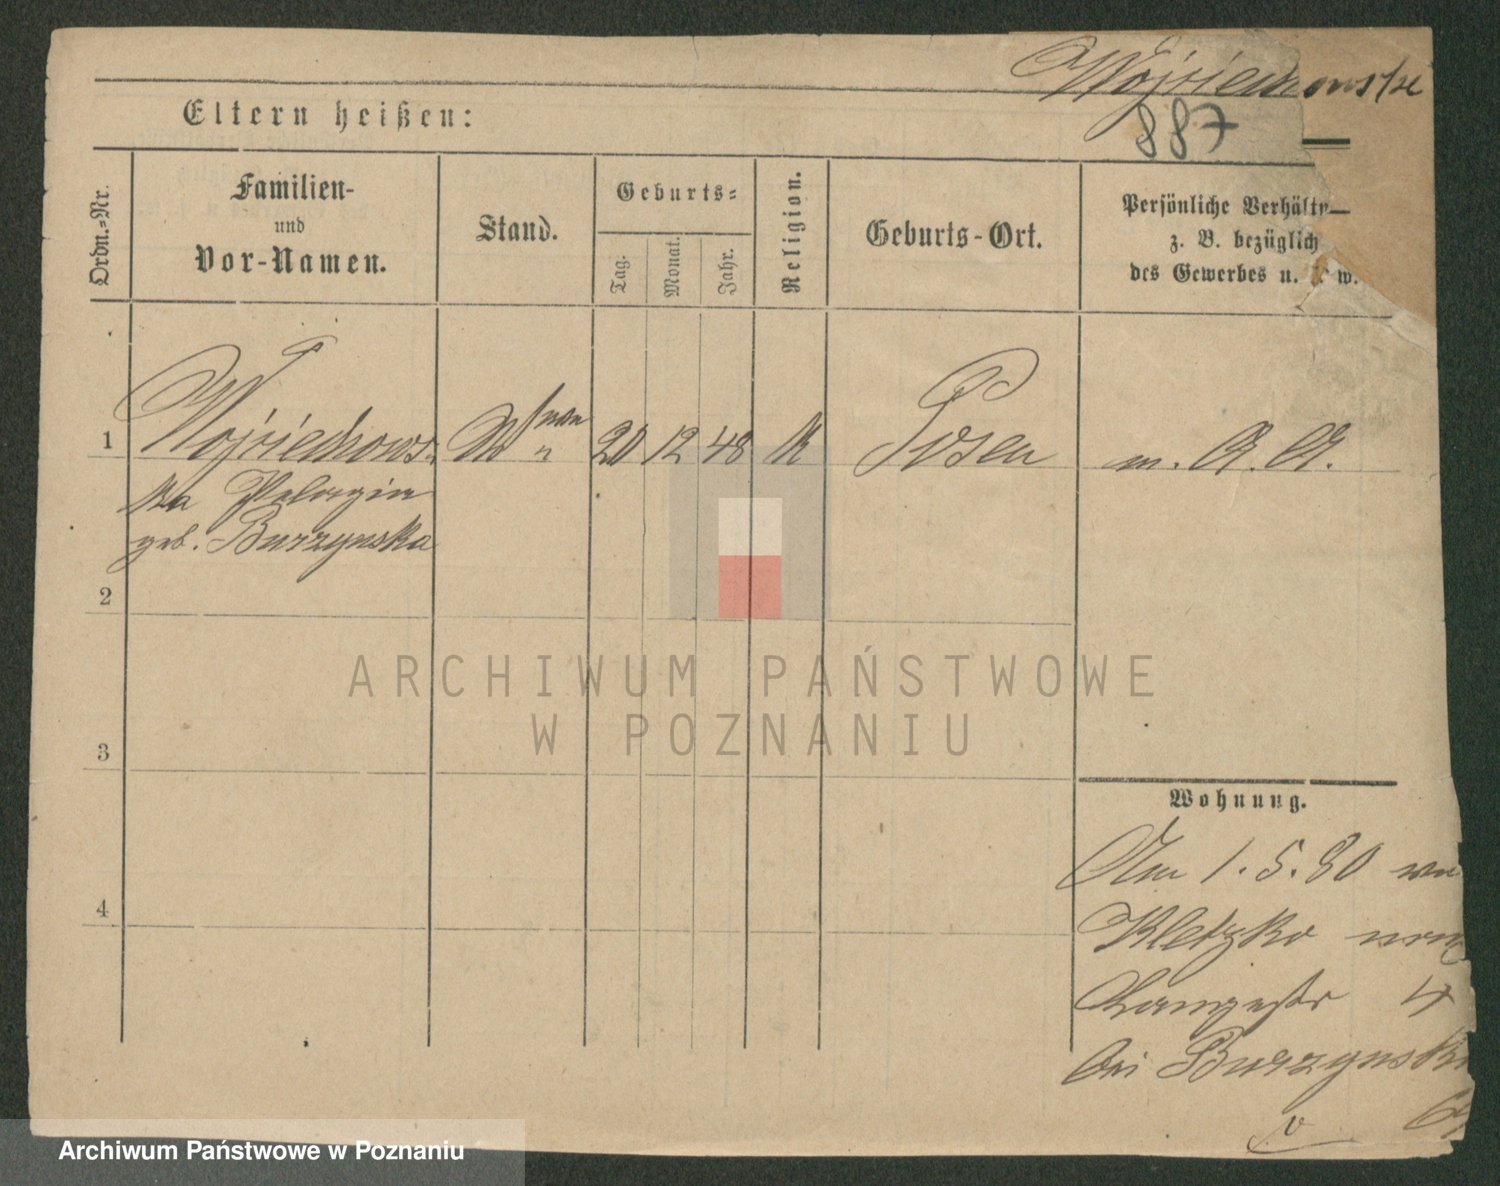 Wojciechowska
887
Eltern heißen:
Ordn.=Nr.
Familien-
und
Vor-Namen.
Stand.
Geburts=
Tag.
Monat.
Jahr.
Religion.
Geburts-Ort.
Persönliche Verhältn
z. B. bezüglich
des Gewerbes u. w.
1
Wojciechows-
ka Pelagia
geb. Burzynska
20
12
48
K
Posen
2
3
4
Wohnung.
Am 1.5.80 von
Kletzko nach
Langestr 4
bei Burzynski
ARCHIWUM PAŃSTWOWE
W POZNANIU
Archiwum Państwowe w Poznaniu